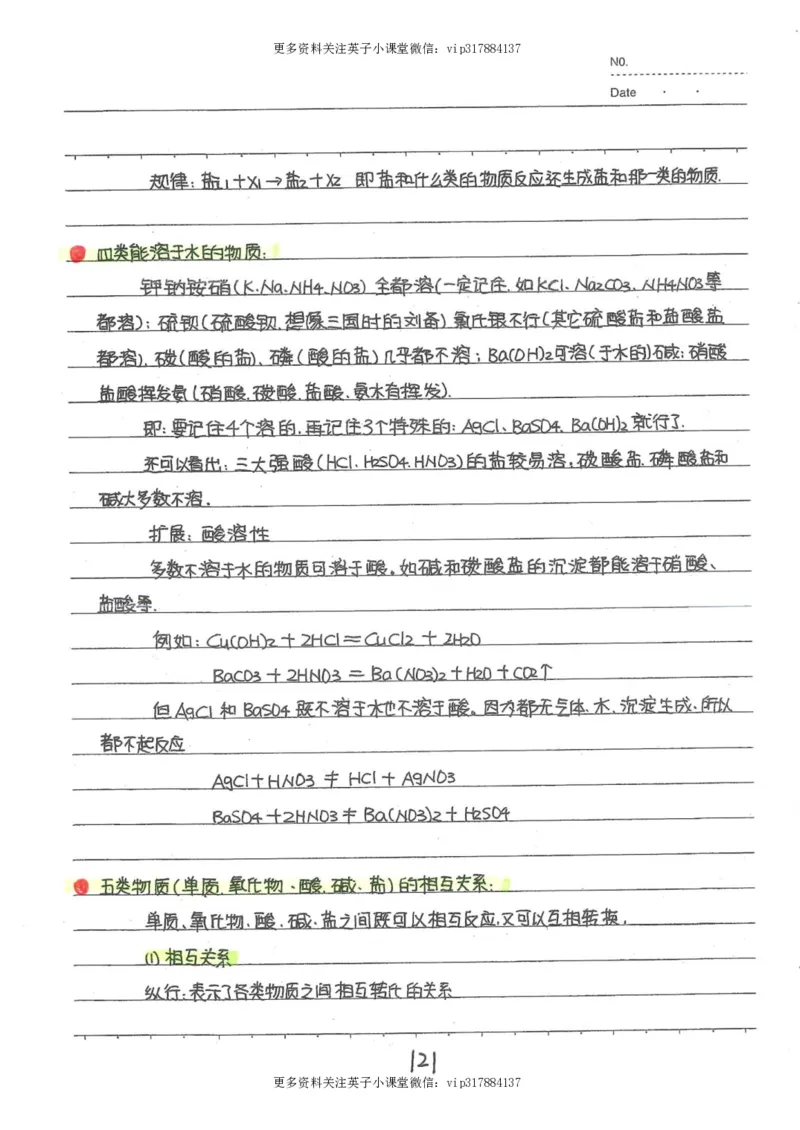 更多资料关注英子小课堂微信：vip317884137
NO.
Date · ·
规律：盐1+X1→盐2+X2 即盐和什么类的物质反应还生成盐和那一类的物质.
四类能溶于水的物质：
钾钠铵硝(K.Na.NH4.NO3) 全都溶(一定记住.如KCl、Na2CO3、NH4NO3等
都溶)；硫钡(硫酸钡.想像三国时的刘备) 氯化银不行(其它硫酸盐和盐酸盐
都溶)，碳(酸的盐)、磷(酸的盐)几乎都不溶；Ba(OH)2可溶(于水的)碱；硝酸
盐酸挥发氨(硝酸.碳酸.盐酸.氨水有挥发).
即：要记住4个溶的.再记住3个特殊的：AgCl、BaSO4、Ba(OH)2就行了.
还可以看出：三大强酸(HCl.H2SO4.HNO3)的盐较易溶，碳酸盐.磷酸盐和
碱大多数不溶.
扩展：酸溶性
多数不溶于水的物质可溶于酸。如碱和碳酸盐的沉淀都能溶于硝酸、
盐酸等.
例如：Cu(OH)2+2HCl=CuCl2+2H2O
BaCO3+2HNO3=Ba(NO3)2+H2O+CO2↑
但AgCl和BaSO4既不溶于水也不溶于酸。因为都无气体.水.沉淀生成.所以
都不起反应
AgCl+HNO3≠HCl+AgNO3
BaSO4+2HNO3≠Ba(NO3)2+H2SO4
五类物质(单质.氧化物、酸.碱.盐)的相互关系：
单质、氧化物.酸.碱.盐之间既可以相互反应,又可以互相转换.
(1)相互关系
纵行：表示了各类物质之间相互转化的关系
121
更多资料关注英子小课堂微信：vip317884137